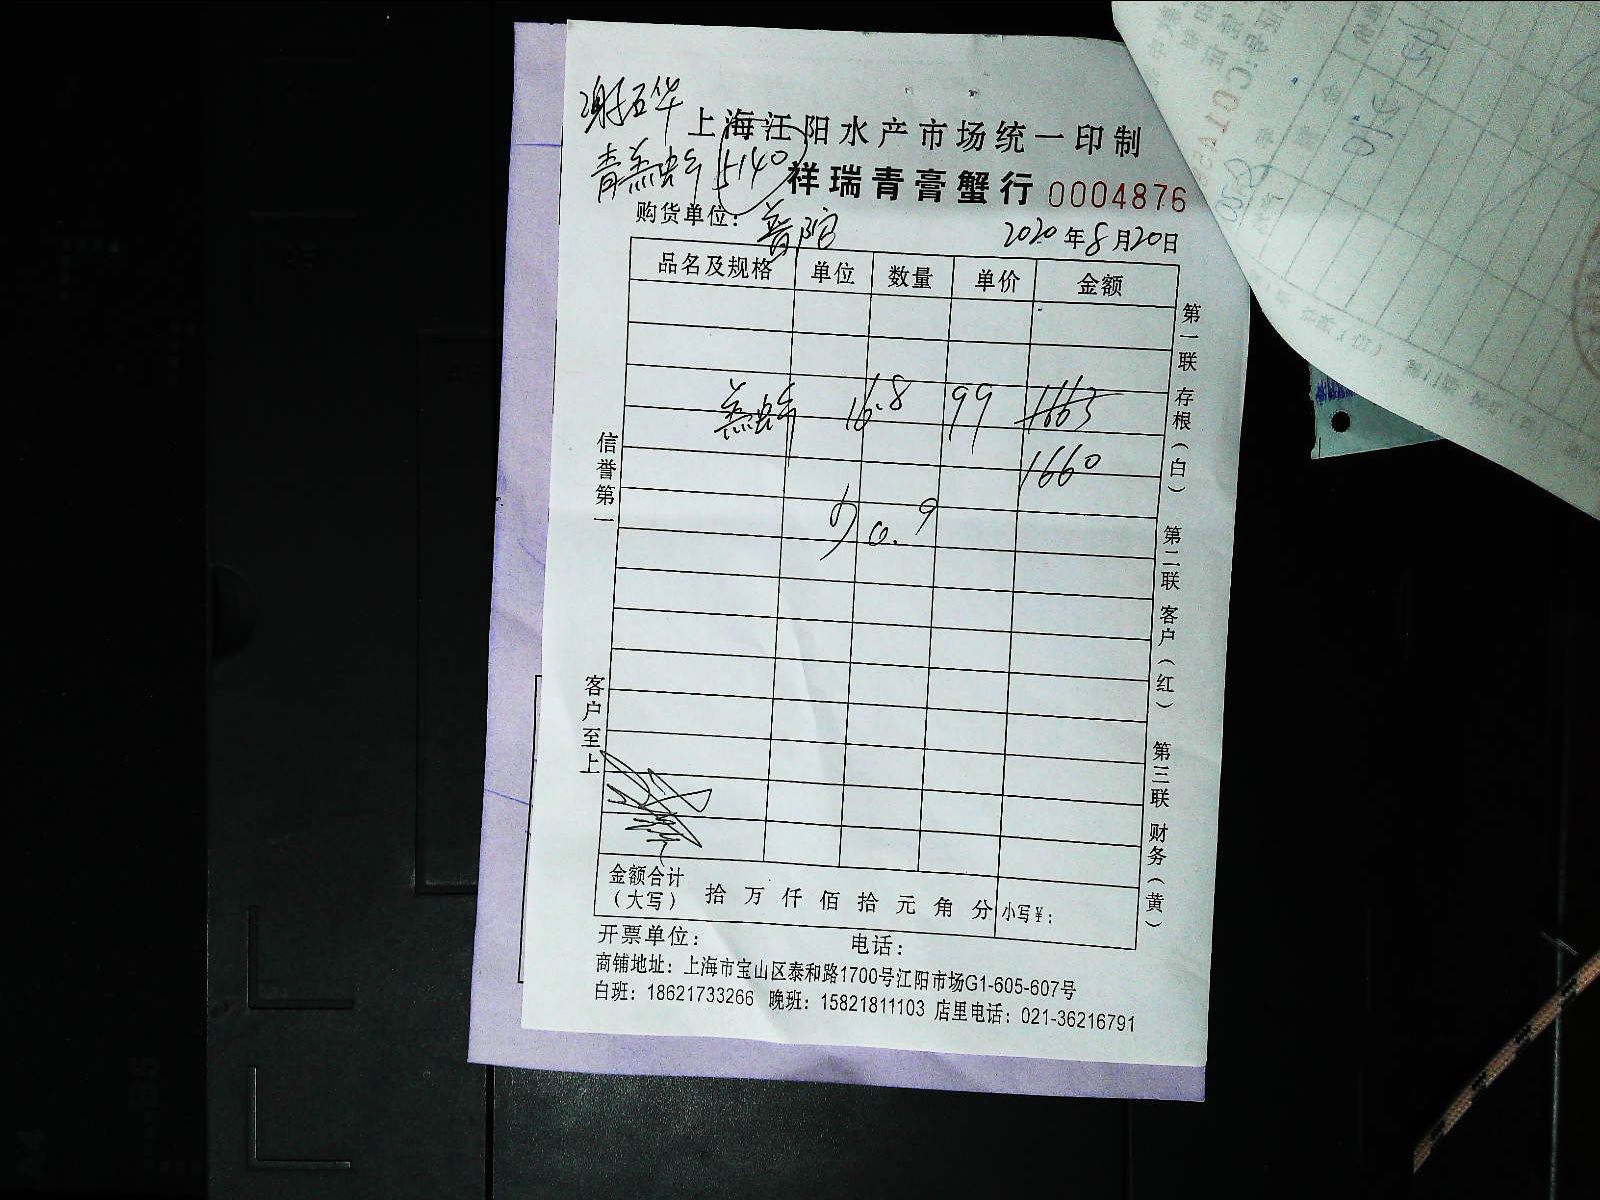 谢石华
上海江阳水产市场统一印制
青羔蟹 5140
祥瑞青膏蟹行 0004876
购货单位： 普陀 2020年8月20日
品名及规格 单位 数量 单价 金额
羔蟹 16.8 99 1663
1660
0.9
信誉第一
客户至上
第一联 存根（白） 第二联 客户（红） 第三联 财务（黄）
金额合计（大写） 拾 万 仟 佰 拾 元 角 分 小写¥：
开票单位： 电话：
商铺地址：上海市宝山区泰和路1700号江阳市场G1-605-607号
白班：18621733266 晚班：15821811103 店里电话：021-36216791